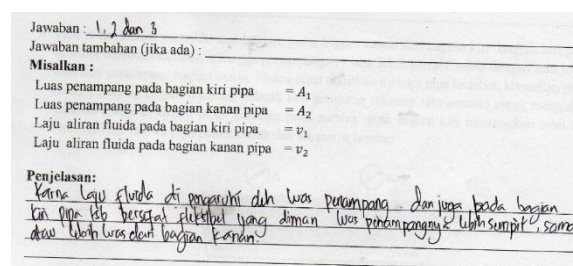 Jawaban : 1, 2 dan 3
Jawaban tambahan (jika ada) :
Misalkan :
Luas penampang pada bagian kiri pipa = A₁
Luas penampang pada bagian kanan pipa = A₂
Laju aliran fluida pada bagian kiri pipa = v₁
Laju aliran fluida pada bagian kanan pipa = v₂
Penjelasan:
Karna laju fluida di pengaruhi oleh luas penampang. dan juga pada bagian
kiri pipa tsb bersifat fleksibel yang diman luas penampangnya lebih sempit, sama
atau lebih luas dari bagian kanan.